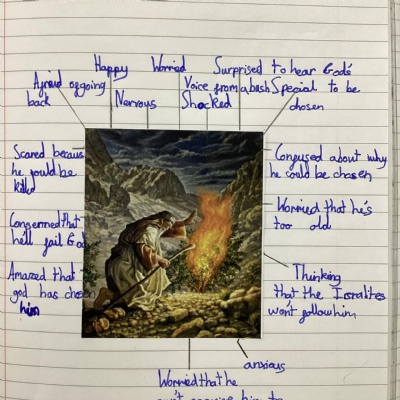 Happy
Worried
Surprised to hear God's
Voice from a bush
Afraid of going
back
Nervous
Shocked
Special to be
chosen
Scared because
he would be
killed
Confused about why
he could be chosen
Concerned that
he'll fail God
Worried that he's
too old
Amazed that
god has chosen
him
Thinking
that the Isralites
won't follow him
anxious
Worried that he